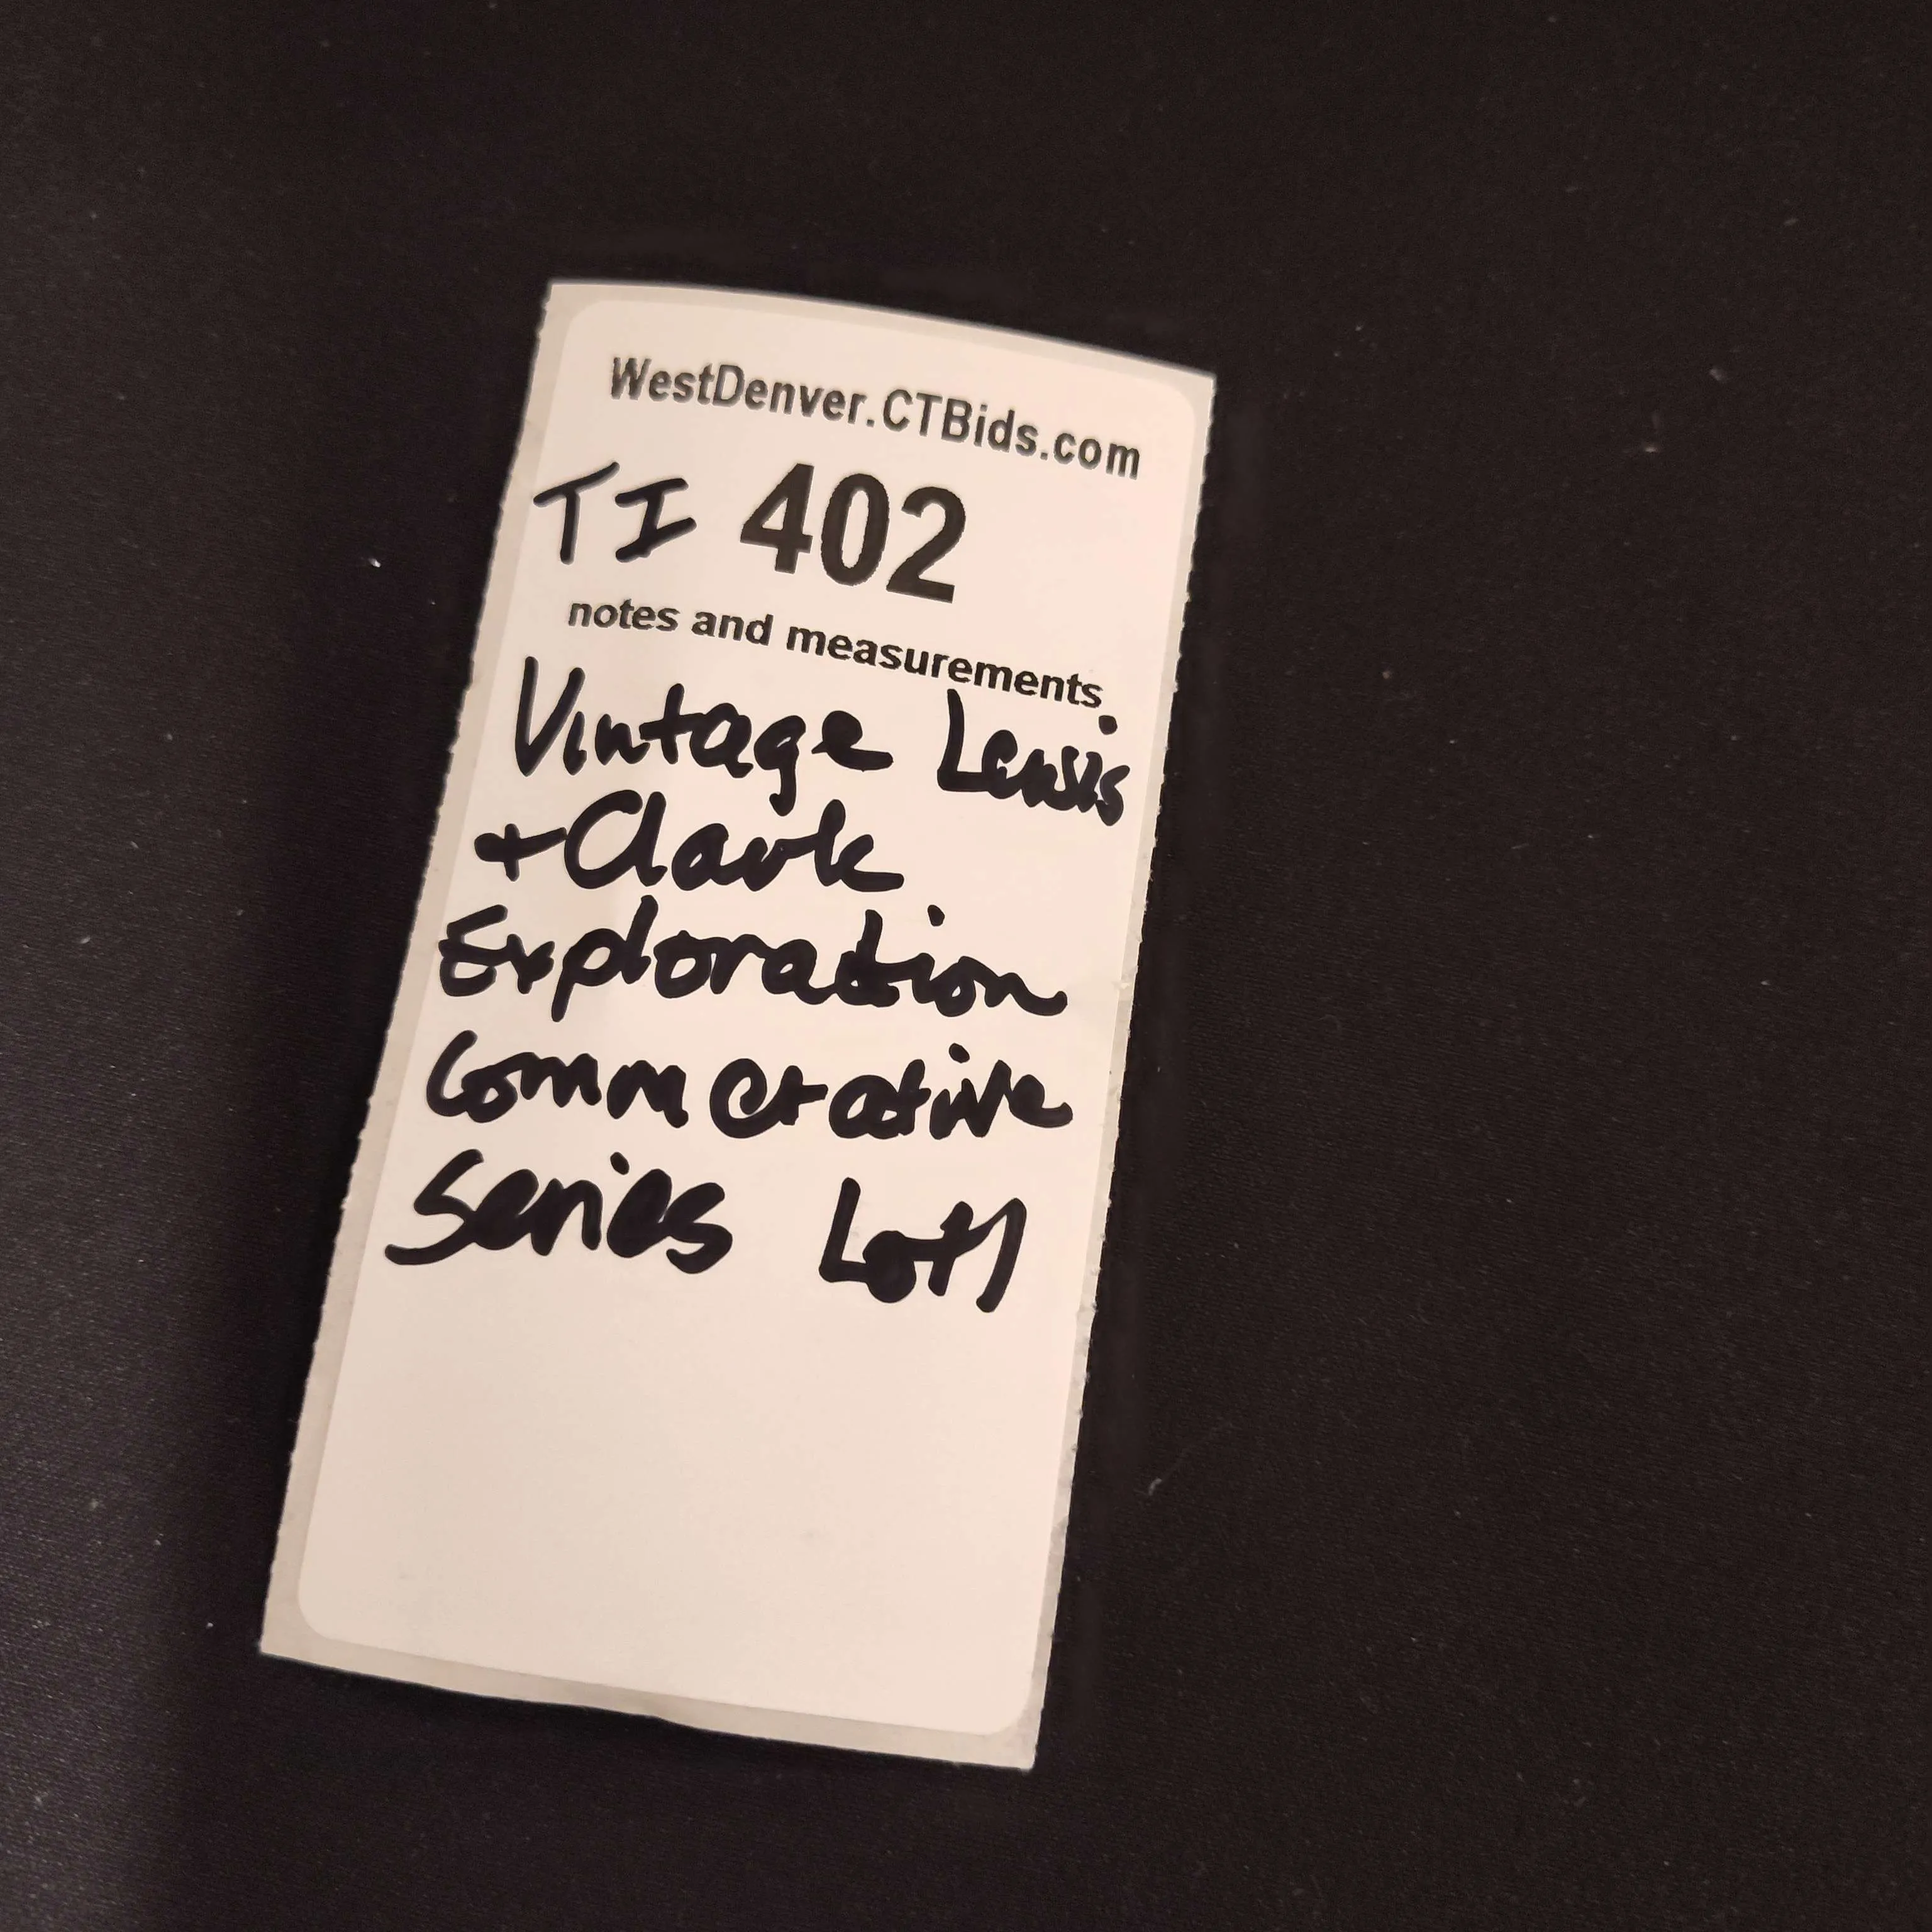 WestDenver.CTBids.com
TI 402
notes and measurements
Vintage Lewis
+ Clark
Exploration
Commerative
Series Lot 1